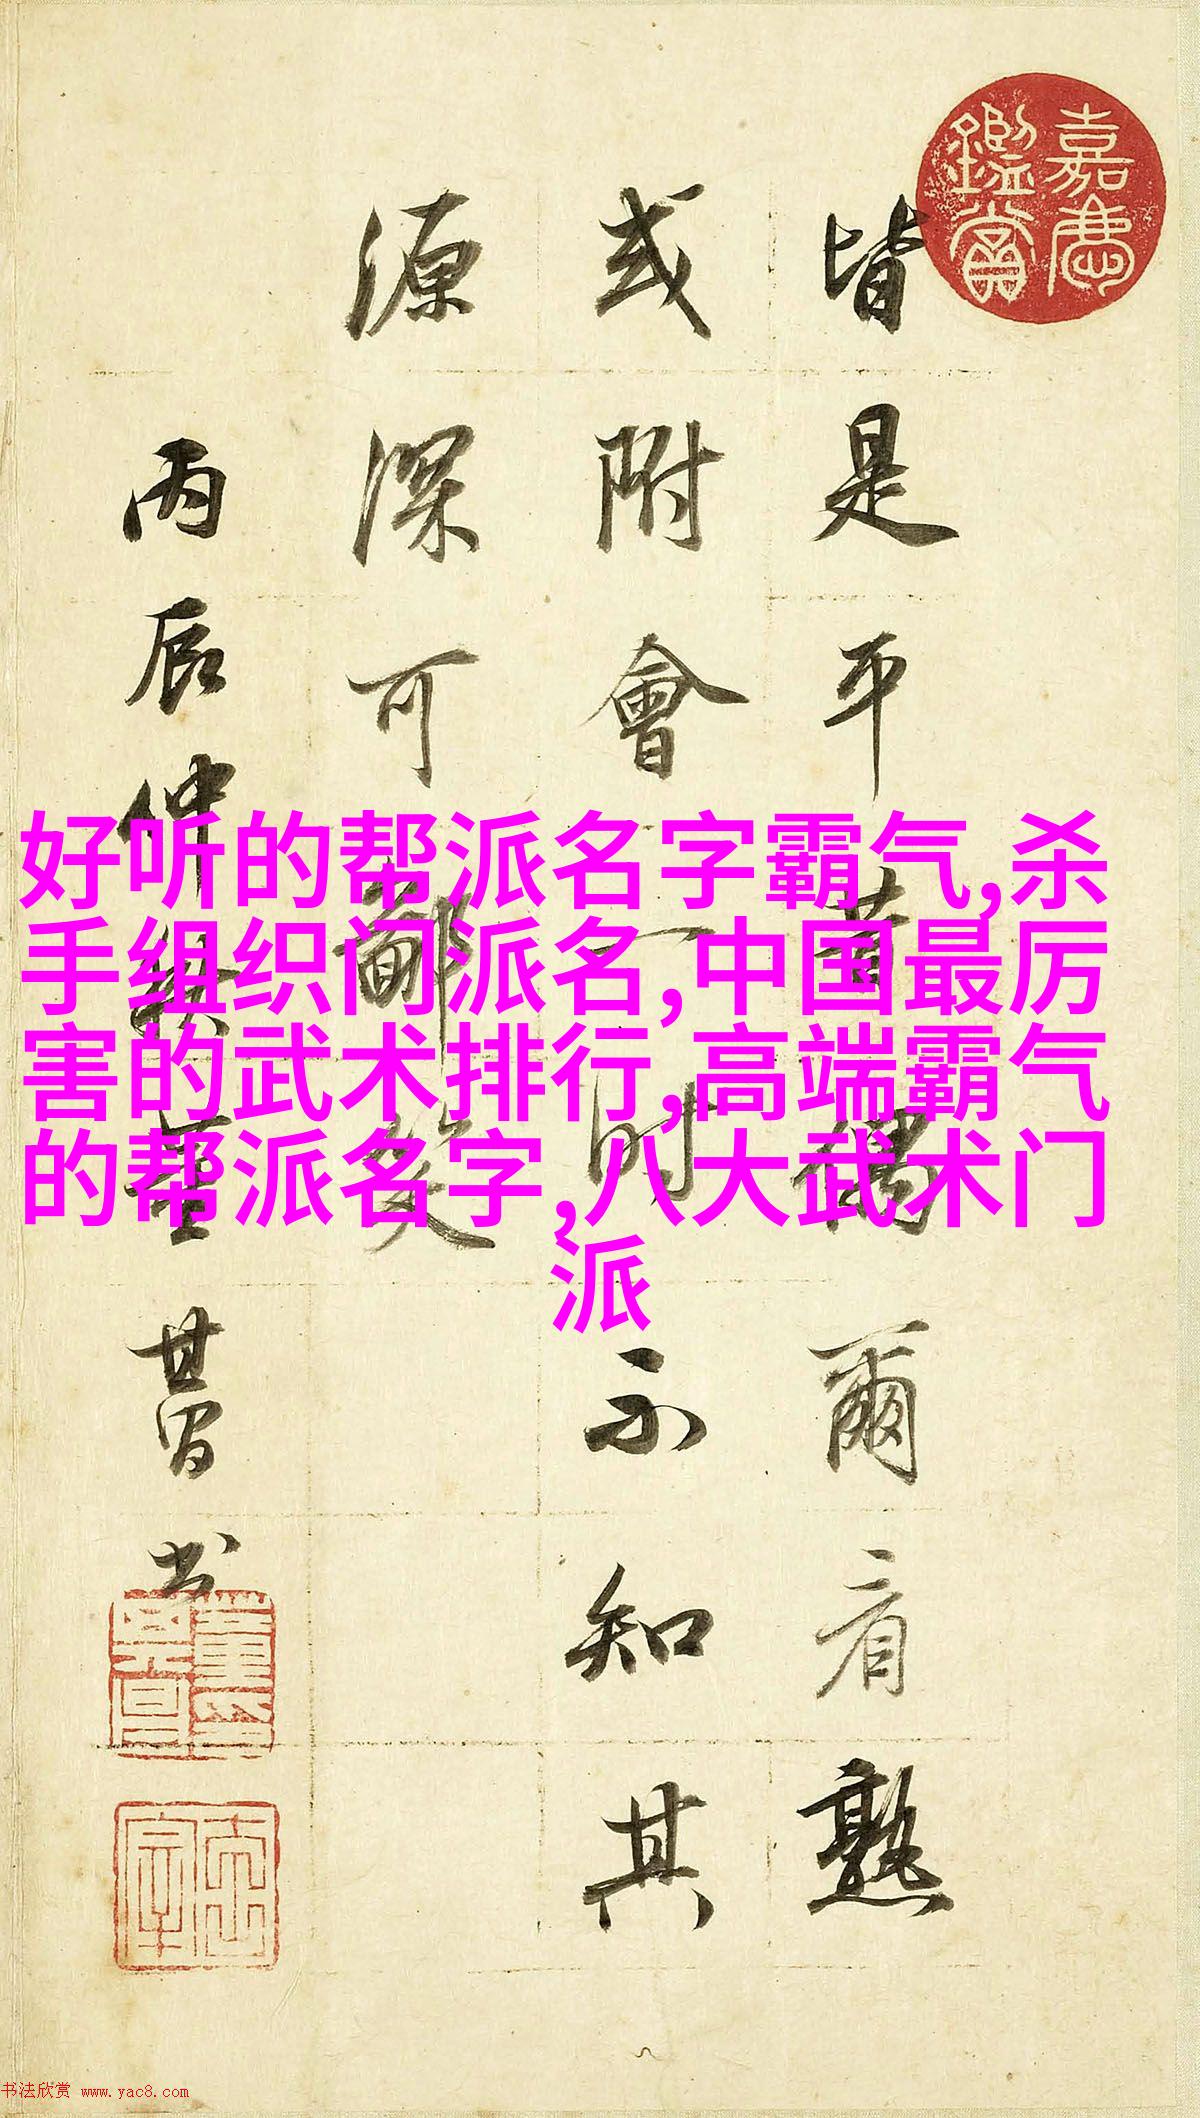 嘉慶
鑑賞
皆是平昔偶爾看熟
或附會一時不知其
源深可鄙笑
丙辰仲董其昌书
好听的帮派名字霸气,杀
手组织门派名,中国最厉
害的武术排行,高端霸气
的帮派名字,八大武术门
派
书法欣赏 www.yac8.com